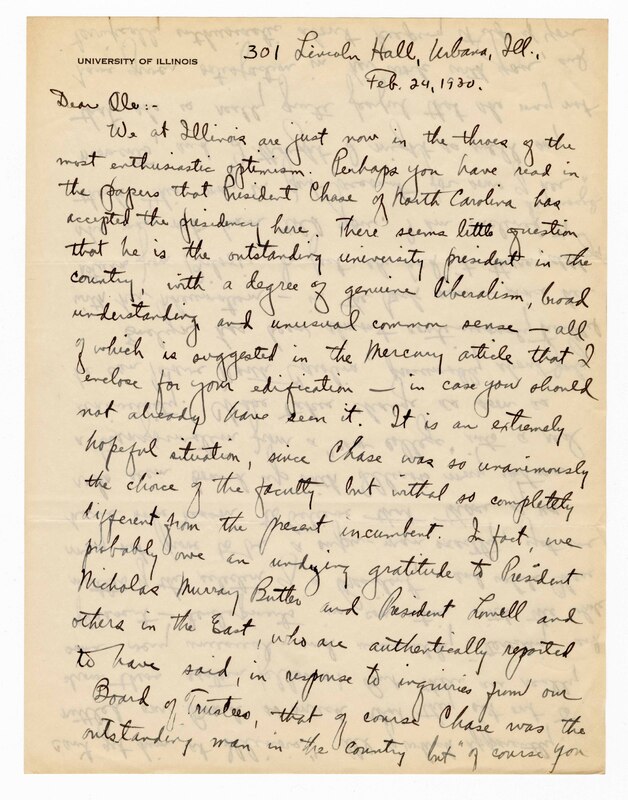 UNIVERSITY OF ILLINOIS
301 Lincoln Hall, Urbana, Ill.,
Feb. 24, 1930.
Dear Ole:-
We at Illinois are just now in the throes of the
most enthusiastic optimism. Perhaps you have read in
the papers that President Chase of North Carolina has
accepted the presidency here. There seems little question
that he is the outstanding university president in the
country, with a degree of genuine liberalism, broad
understanding, and unusual common sense — all
of which is suggested in the Mercury article that I
enclose for your edification — in case you should
not already have seen it. It is an extremely
hopeful situation, since Chase was so unanimously
the choice of the faculty but withal so completely
different from the present incumbent. In fact, we
probably owe an undying gratitude to President
Nicholas Murray Butler and President Lowell and
others in the East, who are authentically reported
to have said, in response to inquiries from our
Board of Trustees, that of course Chase was the
outstanding man in the country but "of course you